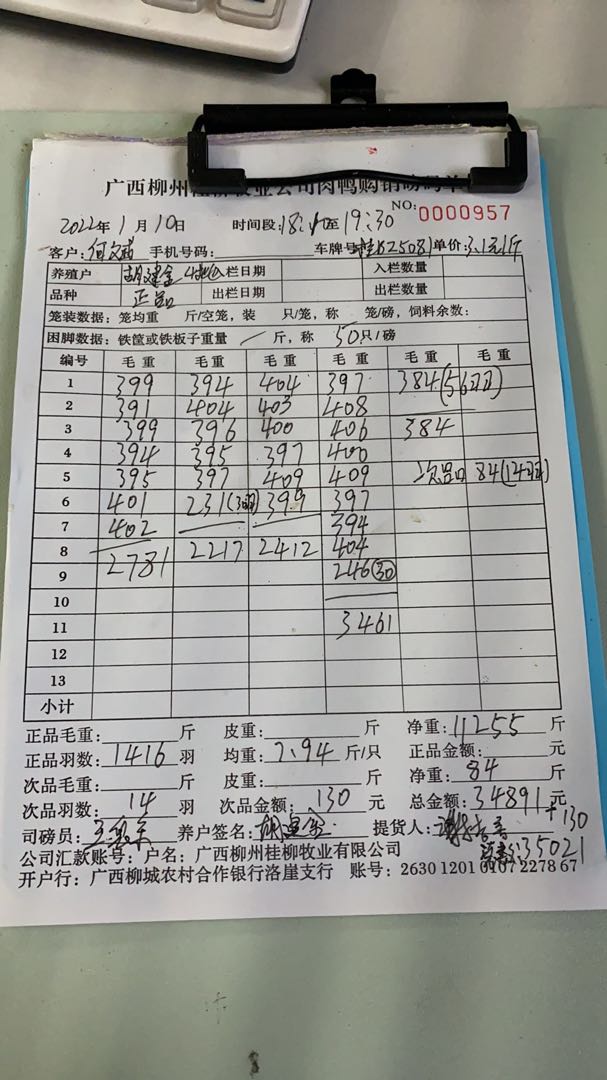 广西柳州桂柳牧业公司肉鸭购销磅码单
NO: 0000957
2022年1月10日 时间段:18:10至19:30
客户: 手机号码: 车牌号桂B25081 单价:3.1元/斤
养殖户 胡建金 入栏日期 入栏数量
品种 正品 出栏日期 出栏数量
笼装数据:笼均重 斤/空笼,装 只/笼,称 笼/磅,饲料余数:
困脚数据:铁筐或铁板子重量 / 斤,称 50只/磅
编号 毛重 毛重 毛重 毛重 毛重 毛重
1 399 394 404 397 384(56羽)
2 391 404 403 408
3 399 396 400 406 384
4 394 395 397 400
5 395 397 409 409 次品 84(14羽)
6 401 231(30羽) 399 397
7 402 394
8 2781 2217 2412 404
9 246(30)
10
11 3461
12
13
小计
正品毛重: 斤 皮重: 斤 净重:11255斤
正品羽数:1416羽 均重:7.94斤/只 正品金额: 元
次品毛重: 斤 皮重: 斤 净重:84斤
次品羽数:14羽 次品金额:130元 总金额:34891元
+130
司磅员: 养户签名:胡建金 提货人:
35021
公司汇款账号:户名:广西柳州桂柳牧业有限公司
开户行:广西柳城农村合作银行洛崖支行 账号:2630 1201 0107 2278 67